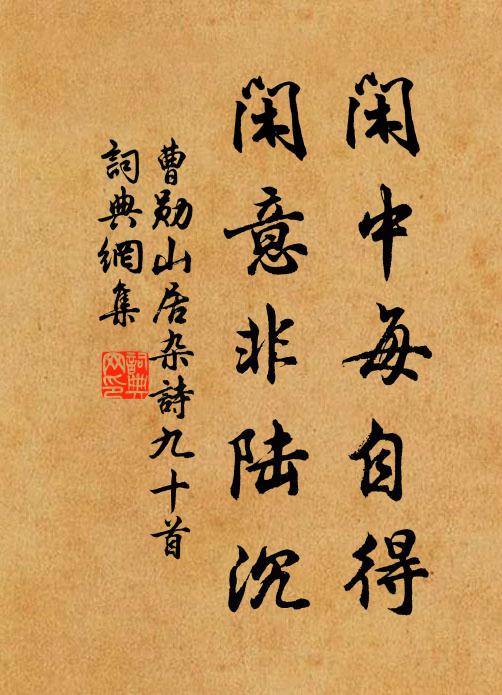 闲中每自得
闲意非陆沉
曹勋山居杂詩九十首
詞典網集
詞典网印